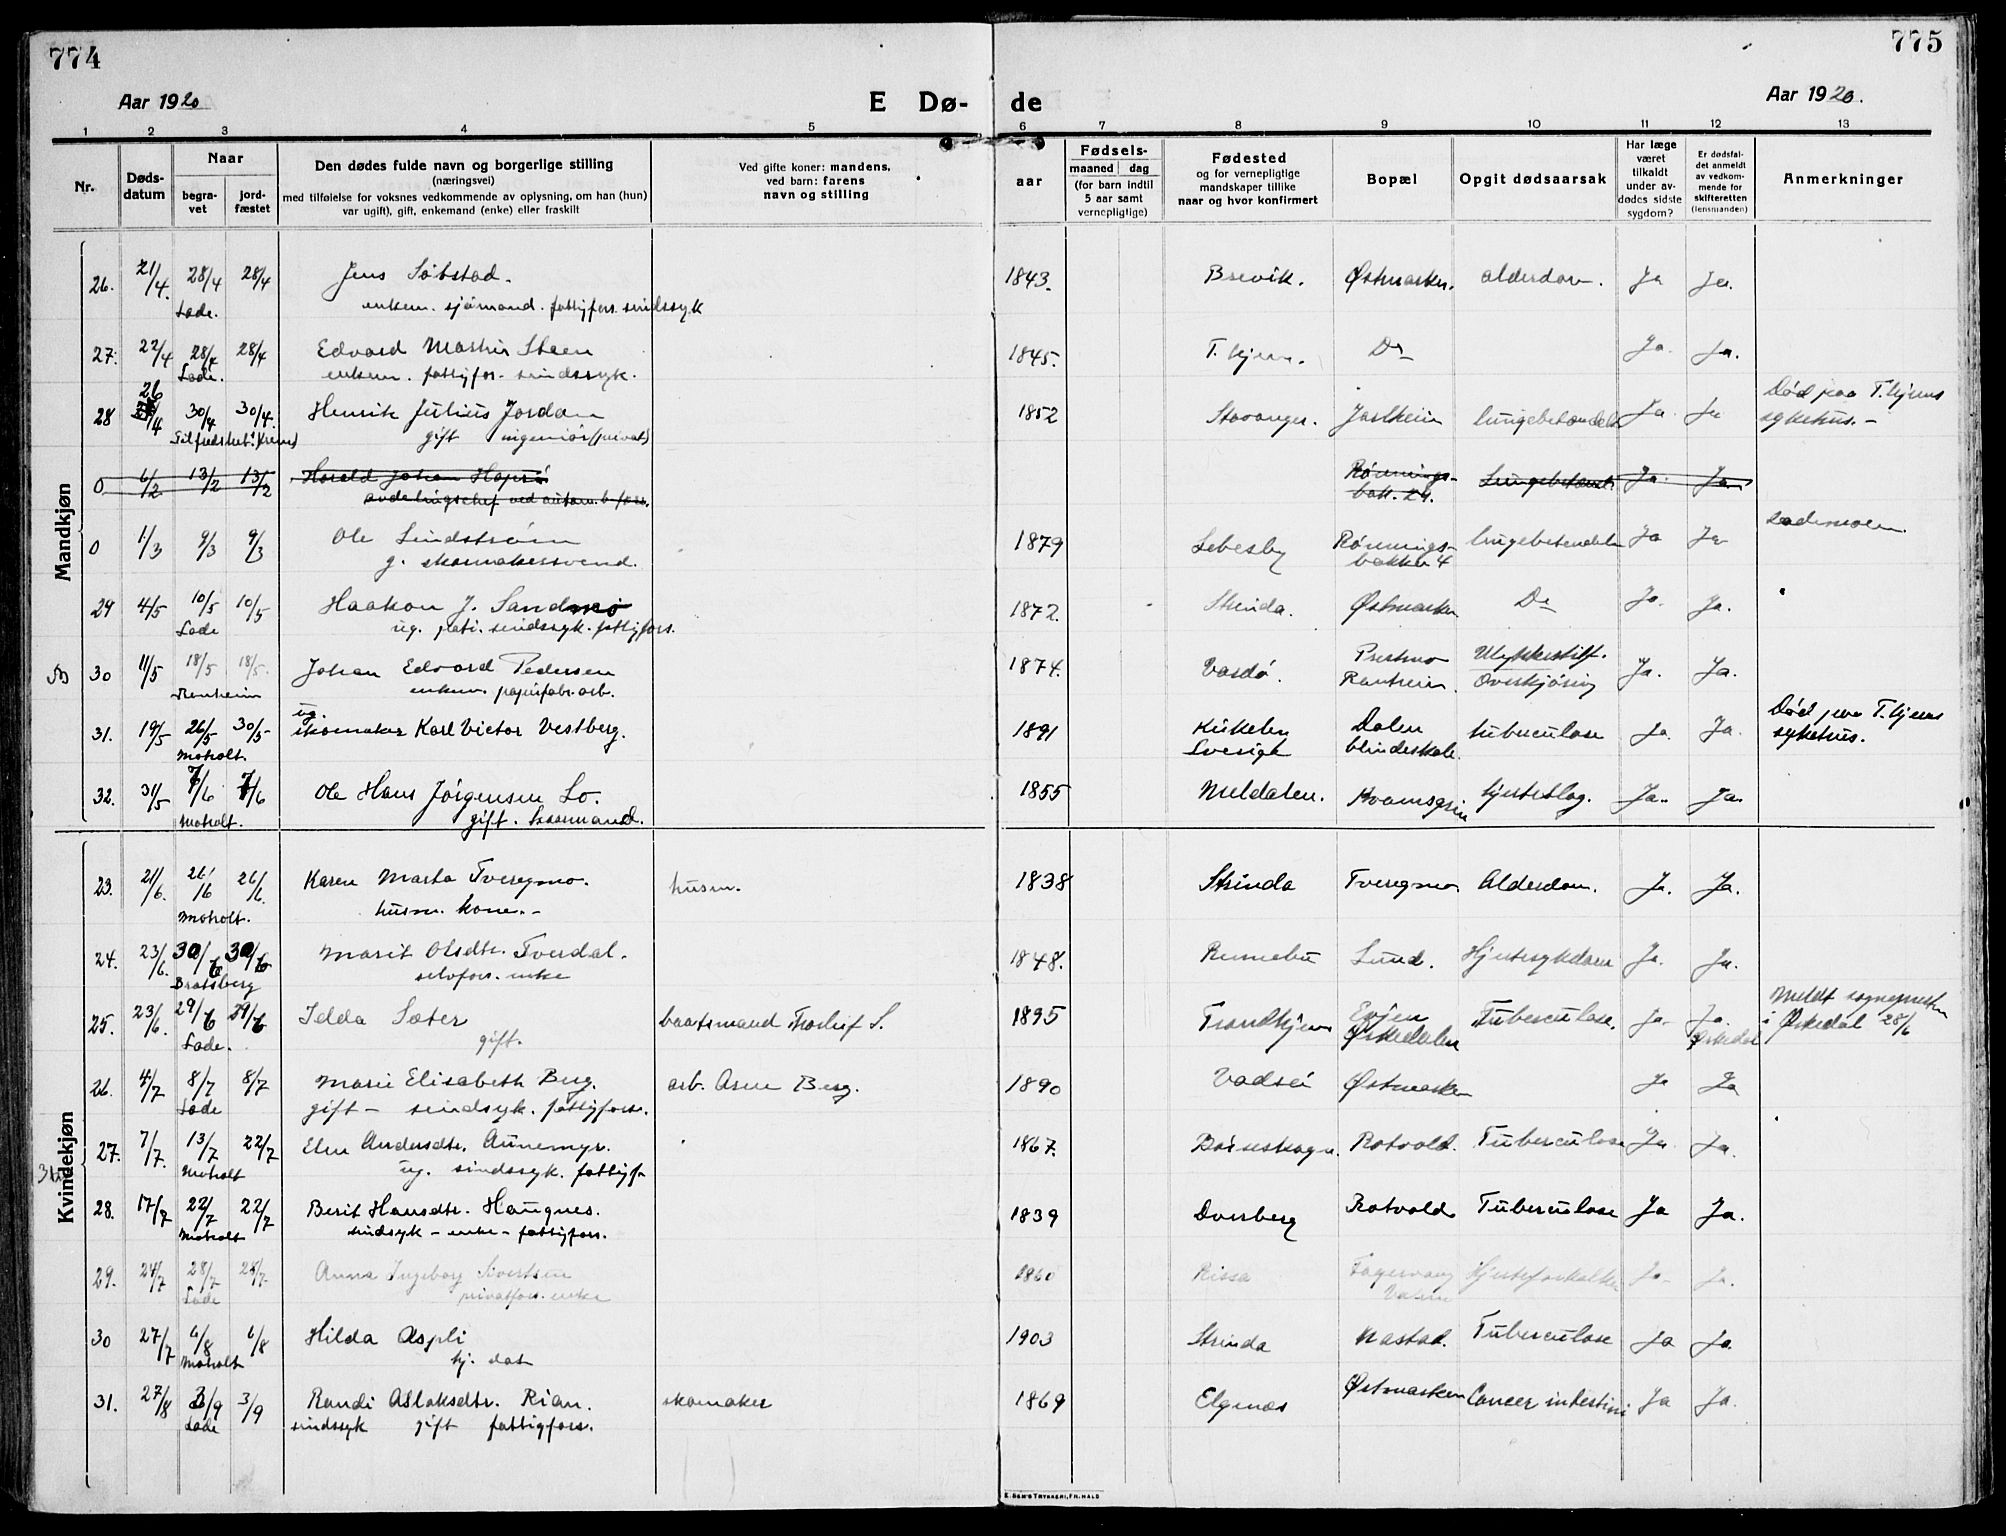 774
775
Aar 1920
E Dø-
de
Aar 1920.
1 2 3 4 5 6 7 8 9 10 11 12 13
Nr.
Døds-
datum
Naar
begra-
vet
jord-
fæstet
Den dødes fulde navn og borgerlige stilling
(næringsvei)
med tilføielse for voksnes vedkommende av oplysning, om han (hun)
var ugift), gift, enkemand (enke) eller fraskilt
Ved gifte koner: mandens,
ved barn: farens
navn og stilling
aar
Fødsels-
maaned dag
(for barn indtil
5 aar samt
vernepligtige)
Fødested
og for vernepligtige
mandskaper tillike
naar og hvor konfirmert
Bopæl
Opgit dødsaarsak
Har læge
været
tilkaldt
under av-
dødes sidste
sygdom?
Er dødsfal-
det anmeldt
av vedkom-
mende for
skifteretten
(lensmanden)
Anmerkninger
Mandkjøn
26. 21/4. 28/4 28/4 Jens Söbstad. 1843. Brevik. Østmarken. alderdom. Ja Ja.
Lade. enkem. sjömand. fattigfors. sindssyk
27. 22/4 28/4 28/4 Edvard Martin Steen 1845. T.hjem. Do Ja. Ja.
Lade. enkem. fattigfors. sindssyk.
28 26/4 30/4 30/4. Henrik Julius Jordan 1852 Stavanger. lungebetændelse Ja Ja Død paa T.hjems
gift ingeniör (privat) sykehus.-
0 6/2 13/2 13/2 Harald Johan Rönnings- Lungebetænd. Ja. Ja.
avdelingschef ved bak. 24.
0 1/3 9/3 9/3 Ole Lindström 1879 Lebesby Rönnings- lungebetændelse Ja Ja Lademoen.
g. skomakersvend. bakken 4
29 4/5 10/5 10/5 Haakon J. Sandmo 1872. Strinda. Østmarken Do Ja. Ja.
Lade ug. sindssyk. fattigfors.
30 11/5 18/5 18/5. Johan Edvard Pedersen 1874. Vardö. Prestmo Ulykkestilf. Ja. Ja.
Ranheim enkem. papirfabr.arb. Ranheim. Overkjöring
31. 19/5 26/5 30/5 ug. skomaker Karl Victor Vestberg. 1891 Dalen tuberculose Ja Ja. Død paa T.hjems
Moholt. Sverige blindeskole. sykehus.
32. 31/5 7/6 7/6 Ole Hans Jörgensen Lo. 1855 Meldalen. hjerteslag. Ja. Ja.
Moholt. gift.
Kvindekjøn
23. 21/6. 26/6 26/6. Karen Marta Tveregmo. husm. 1838 Strinda Tveregmo Alderdom. Ja. Ja.
Moholt. husm. kone.-
24. 23/6. 30/6 30/6 Marit Olsdtr. Tverdal. 1848. Rennebu Lund. Hjertesykdom Ja. Ja.
Bratsberg selvfors. enke
25. 23/6. 29/6 29/6 Idda Sæter baatsmand Thorleif S. 1895 Trondhjem Evjen Tuberculose. Ja Ja. Meldt sogneprest
Lade. gift. Ørkedalen Ørkedal i Ørkedal 28/6
26. 4/7 8/7 8/7 Marie Elisabeth Berg. arb. Arne Berg. 1890 Vadsö Østmarken Ja Ja
Lade gift - sindsyk. fattigfors.
27. 7/7. 13/7 22/7 Elen Andersdtr. Aunemyr. 1867. Börseskogn. Rotvold. Tuberculose Ja. Ja.
Moholt ug. sindssyk. fattigf.
28. 17/7 22/7 22/7 Berit Hansdtr. Haugnes. 1839 Dverberg Rotvold Tuberculose Ja Ja.
Moholt sindsyk - enke - fattigfors.
29. 24/7 28/7 28/7. Anna Ingeborg Sivertsen 1860 Rissa Fagervang Hjerteforkalkn Ja Ja.
Lade privatfors. enke
30 27/7 6/8 6/8 Hilda Aspli 1903 Strinda Nastad. Tuberculose Ja Ja.
Moholt hj. dat
31. 27/8 3/9 3/9 Randi Aslaksdtr. Rian. skomaker 1869 Elgenæs Østmarken Cancer intestini Ja Ja.
Lade sindssyk gift fattigfors.
E. SEM'S TRYKKERI, FR.HALD